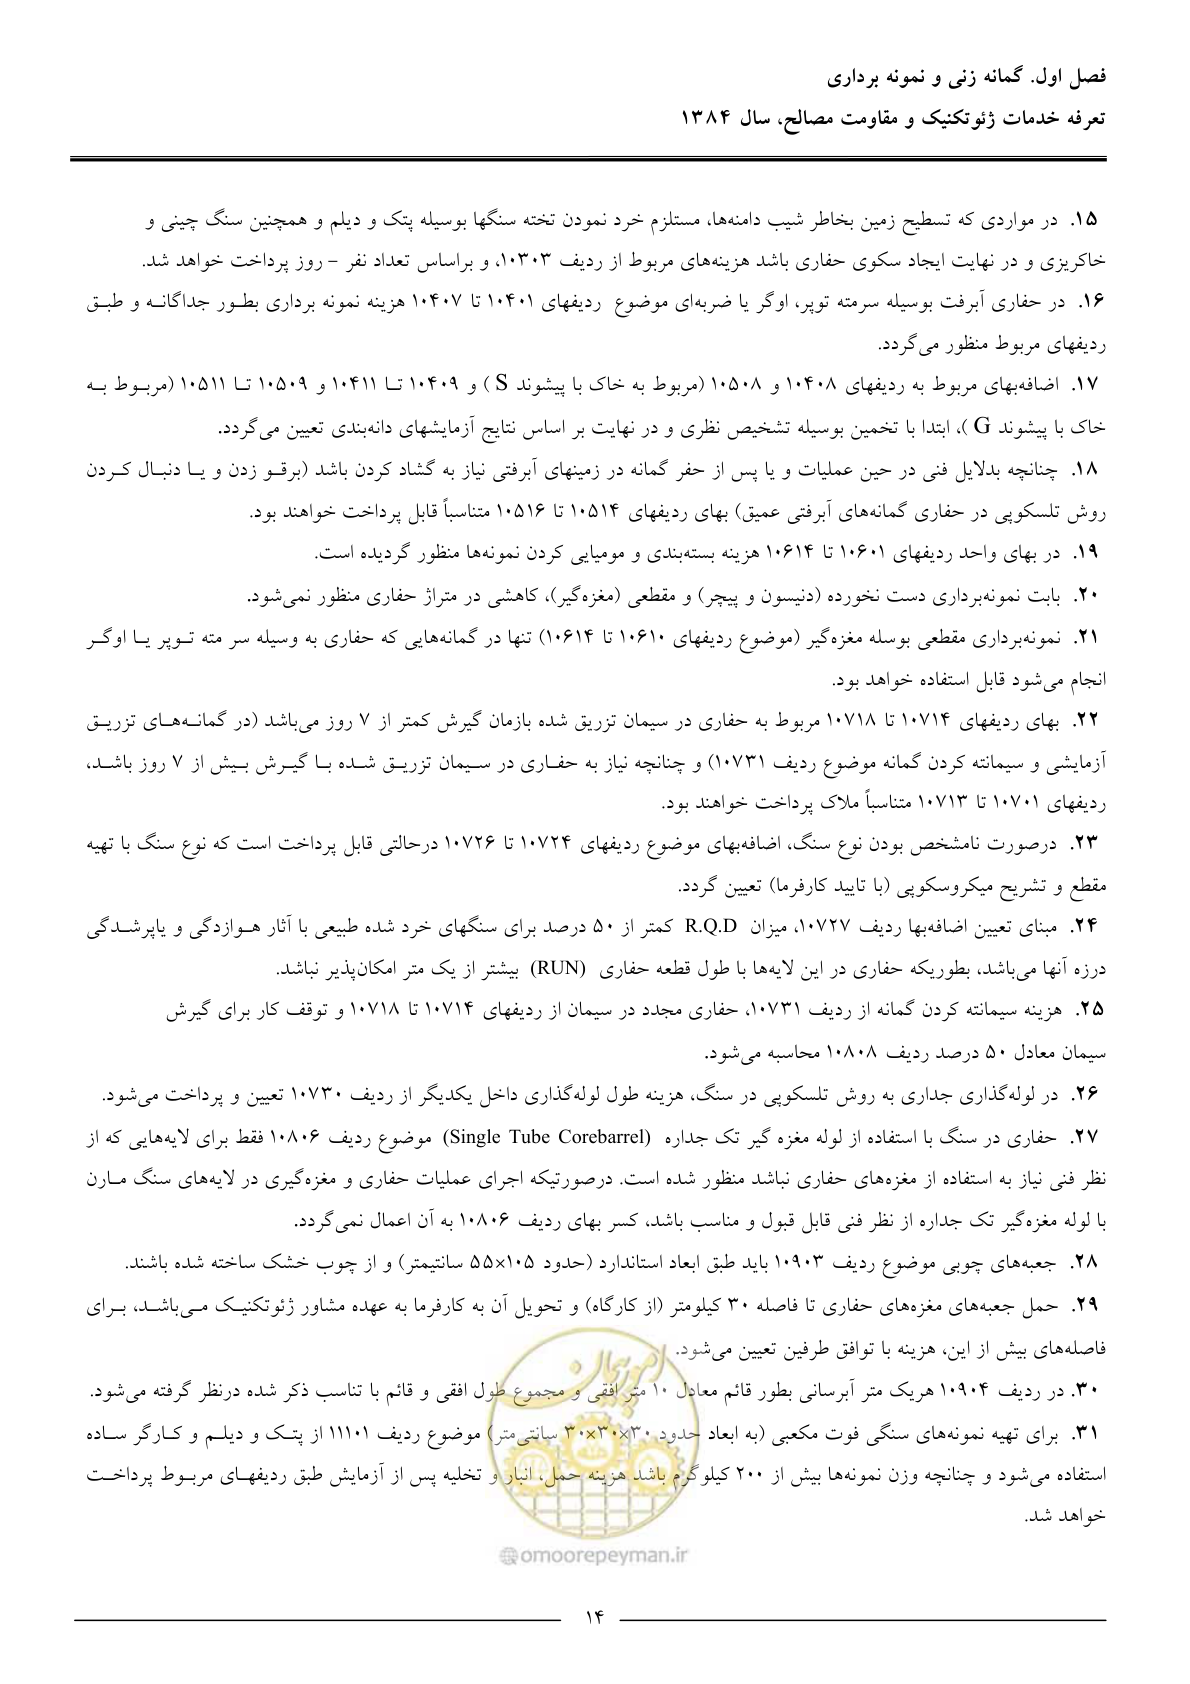 فصل اول. گمانه زنی و نمونه برداری
تعرفه خدمات ژئوتکنیک و مقاومت مصالح، سال ۱۳۸۴
۱۵. در مواردی که تسطیح زمین بخاطر شیب دامنه‌ها، مستلزم خرد نمودن تخته سنگها بوسیله پتک و دیلم و همچنین سنگ چینی و
خاکریزی و در نهایت ایجاد سکوی حفاری باشد هزینه‌های مربوط از ردیف ۱۰۳۰۳، و براساس تعداد نفر – روز پرداخت خواهد شد.
۱۶. در حفاری آبرفت بوسیله سرمته توپر، اوگر یا ضربه‌ای موضوع ردیفهای ۱۰۴۰۱ تا ۱۰۴۰۷ هزینه نمونه برداری بطور جداگانه و طبق
ردیفهای مربوط منظور می‌گردد.
۱۷. اضافه‌بهای مربوط به ردیفهای ۱۰۴۰۸ و ۱۰۵۰۸ (مربوط به خاک با پیشوند S ) و ۱۰۴۰۹ تا ۱۰۴۱۱ و ۱۰۵۰۹ تا ۱۰۵۱۱ (مربوط به
خاک با پیشوند G )، ابتدا با تخمین بوسیله تشخیص نظری و در نهایت بر اساس نتایج آزمایشهای دانه‌بندی تعیین می‌گردد.
۱۸. چنانچه بدلایل فنی در حین عملیات و یا پس از حفر گمانه در زمینهای آبرفتی نیاز به گشاد کردن باشد (برقو زدن و یا دنبال کردن
روش تلسکوپی در حفاری گمانه‌های آبرفتی عمیق) بهای ردیفهای ۱۰۵۱۴ تا ۱۰۵۱۶ متناسباً قابل پرداخت خواهند بود.
۱۹. در بهای واحد ردیفهای ۱۰۶۰۱ تا ۱۰۶۱۴ هزینه بسته‌بندی و مومیایی کردن نمونه‌ها منظور گردیده است.
۲۰. بابت نمونه‌برداری دست نخورده (دنیسون و پیچر) و مقطعی (مغزه‌گیر)، کاهشی در متراژ حفاری منظور نمی‌شود.
۲۱. نمونه‌برداری مقطعی بوسله مغزه‌گیر (موضوع ردیفهای ۱۰۶۱۰ تا ۱۰۶۱۴) تنها در گمانه‌هایی که حفاری به وسیله سر مته توپر یا اوگر
انجام می‌شود قابل استفاده خواهد بود.
۲۲. بهای ردیفهای ۱۰۷۱۴ تا ۱۰۷۱۸ مربوط به حفاری در سیمان تزریق شده بازمان گیرش کمتر از ۷ روز می‌باشد (در گمانه‌های تزریق
آزمایشی و سیمانته کردن گمانه موضوع ردیف ۱۰۷۳۱) و چنانچه نیاز به حفاری در سیمان تزریق شده با گیرش بیش از ۷ روز باشد،
ردیفهای ۱۰۷۰۱ تا ۱۰۷۱۳ متناسباً ملاک پرداخت خواهند بود.
۲۳. درصورت نامشخص بودن نوع سنگ، اضافه‌بهای موضوع ردیفهای ۱۰۷۲۴ تا ۱۰۷۲۶ درحالتی قابل پرداخت است که نوع سنگ با تهیه
مقطع و تشریح میکروسکوپی (با تایید کارفرما) تعیین گردد.
۲۴. مبنای تعیین اضافه‌بها ردیف ۱۰۷۲۷، میزان R.Q.D کمتر از ۵۰ درصد برای سنگهای خرد شده طبیعی با آثار هوازدگی و یاپرشدگی
درزه آنها می‌باشد، بطوریکه حفاری در این لایه‌ها با طول قطعه حفاری (RUN) بیشتر از یک متر امکان‌پذیر نباشد.
۲۵. هزینه سیمانته کردن گمانه از ردیف ۱۰۷۳۱، حفاری مجدد در سیمان از ردیفهای ۱۰۷۱۴ تا ۱۰۷۱۸ و توقف کار برای گیرش
سیمان معادل ۵۰ درصد ردیف ۱۰۸۰۸ محاسبه می‌شود.
۲۶. در لوله‌گذاری جداری به روش تلسکوپی در سنگ، هزینه طول لوله‌گذاری داخل یکدیگر از ردیف ۱۰۷۳۰ تعیین و پرداخت می‌شود.
۲۷. حفاری در سنگ با استفاده از لوله مغزه گیر تک جداره (Single Tube Corebarrel) موضوع ردیف ۱۰۸۰۶ فقط برای لایه‌هایی که از
نظر فنی نیاز به استفاده از مغزه‌های حفاری نباشد منظور شده است. درصورتیکه اجرای عملیات حفاری و مغزه‌گیری در لایه‌های سنگ مارن
با لوله مغزه‌گیر تک جداره از نظر فنی قابل قبول و مناسب باشد، کسر بهای ردیف ۱۰۸۰۶ به آن اعمال نمی‌گردد.
۲۸. جعبه‌های چوبی موضوع ردیف ۱۰۹۰۳ باید طبق ابعاد استاندارد (حدود ۱۰۵×۵۵ سانتیمتر) و از چوب خشک ساخته شده باشند.
۲۹. حمل جعبه‌های مغزه‌های حفاری تا فاصله ۳۰ کیلومتر (از کارگاه) و تحویل آن به کارفرما به عهده مشاور ژئوتکنیک می‌باشد، برای
فاصله‌های بیش از این، هزینه با توافق طرفین تعیین می‌شود.
۳۰. در ردیف ۱۰۹۰۴ هریک متر آبرسانی بطور قائم معادل ۱۰ متر افقی و مجموع طول افقی و قائم با تناسب ذکر شده درنظر گرفته می‌شود.
۳۱. برای تهیه نمونه‌های سنگی فوت مکعبی (به ابعاد حدود ۳۰×۳۰×۳۰ سانتی‌متر) موضوع ردیف ۱۱۱۰۱ از پتک و دیلم و کارگر ساده
استفاده می‌شود و چنانچه وزن نمونه‌ها بیش از ۲۰۰ کیلوگرم باشد هزینه حمل، انبار و تخلیه پس از آزمایش طبق ردیفهای مربوط پرداخت
خواهد شد.
امورپیمان
@omoorepeyman.ir
۱۴